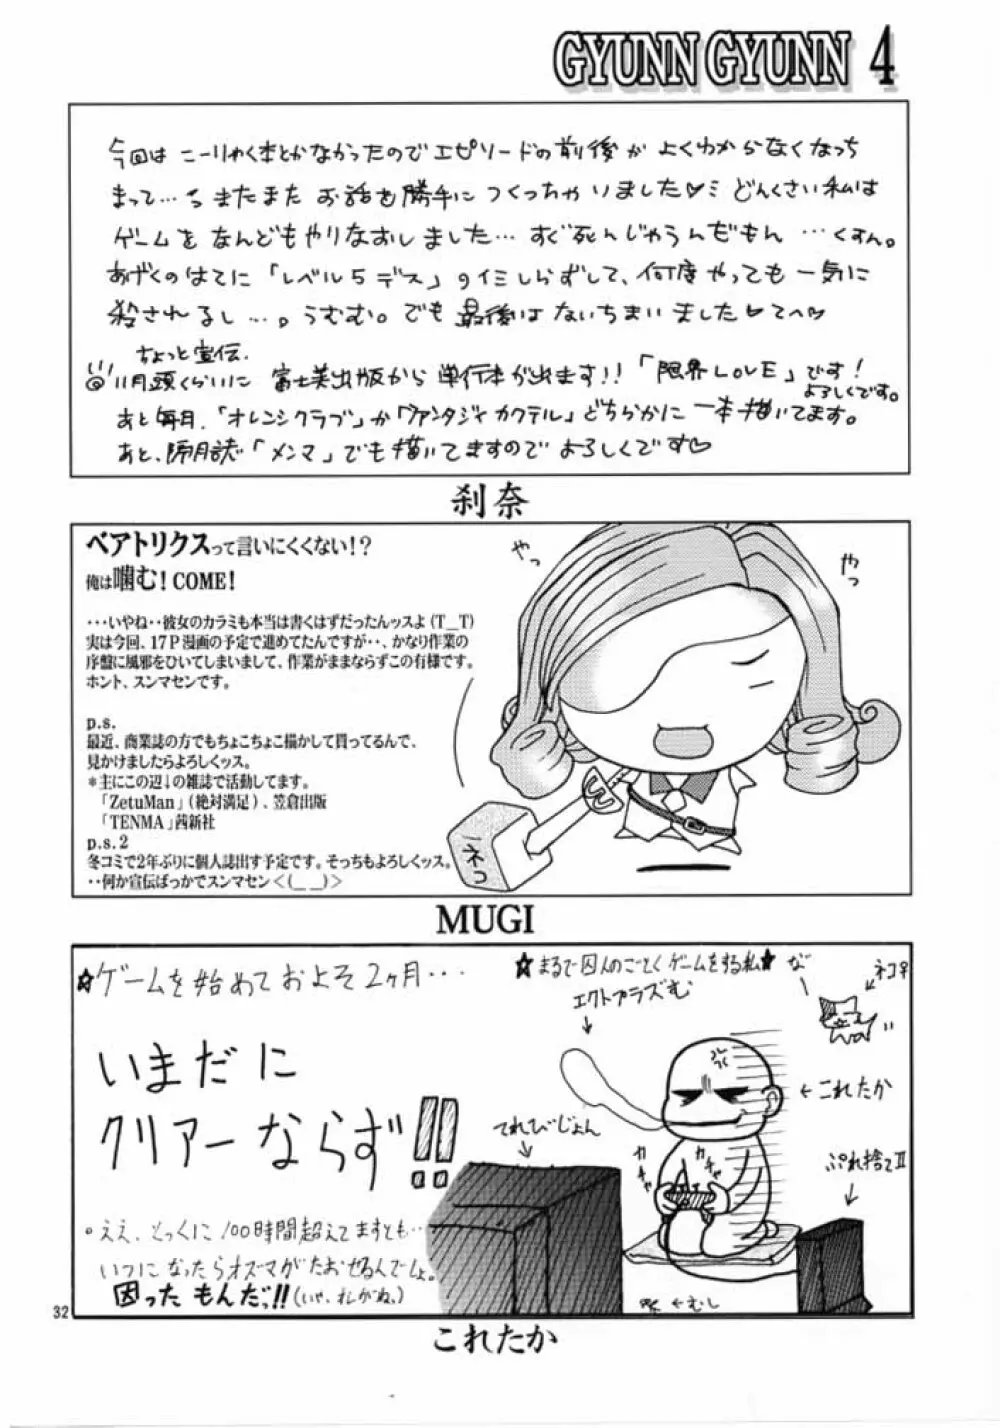 GYUNN GYUNN 4
今回は こーりゃく本とかなかったのでエピソードの前後が よくわからなくなっち
まって…ぅ またまた お話を勝手に つくっちゃいました♡ミ どんくさい私は
ゲームを なんどもやりなおしました… すぐ死んじゃうんだもん …くすん。
あげくのはてに「レベル5デス」のイミしらずして、何度やっても一気に
殺されるし…。うむむ。でも 最後はないちまいました♡てへ♡
ちょっと宣伝。
11月頭くらいに 富士美出版から 単行本が出ます!!「限界LOVE」です!
よろしくです。
あと毎月、「オレンジクラブ」か「ヴァンタジィカクテル」どちらかに 一本描いてます。
あと、隔月誌「メンマ」でも描いてますので よろしくです♡
刹奈
ベアトリクスって言いにくくない!?
俺は噛む! COME!
・・・いやね・・彼女のカラミも本当は書くはずだったんッスよ(T_T)
実は今回、17P漫画の予定で進めてたんですが・・、かなり作業の
序盤に風邪をひいてしまいまして、作業がままならずこの有様です。
ホント、スンマセンです。
p.s.
最近、商業誌の方でもちょこちょこ描かして買ってるんで、
見かけましたらよろしくッス。
*主にこの辺↓の雑誌で活動してます。
「ZetuMan」(絶対満足)、笠倉出版
「TENMA」茜新社
p.s.2
冬コミで2年ぶりに個人誌出す予定です。そっちもよろしくッス。
・・何か宣伝ばっかでスンマセン<(_ _)>
やっ
やっ
ネコ
MUGI
☆ゲームを始めておよそ2ヶ月・・・
いまだに
クリアーならず!!
。ええ、とっくに100時間超えてますとも…
いつになったらオズマがたおせるんでしょ。
困ったもんだっ!!(いや、オレがね。)
☆まるで囚人のごとくゲームをする私★
エクトプラズむ
な
ネコ
←これたか
てれびじょん
ガチャ
ガチャ
ぷれ捨てII
←むし
32
これたか